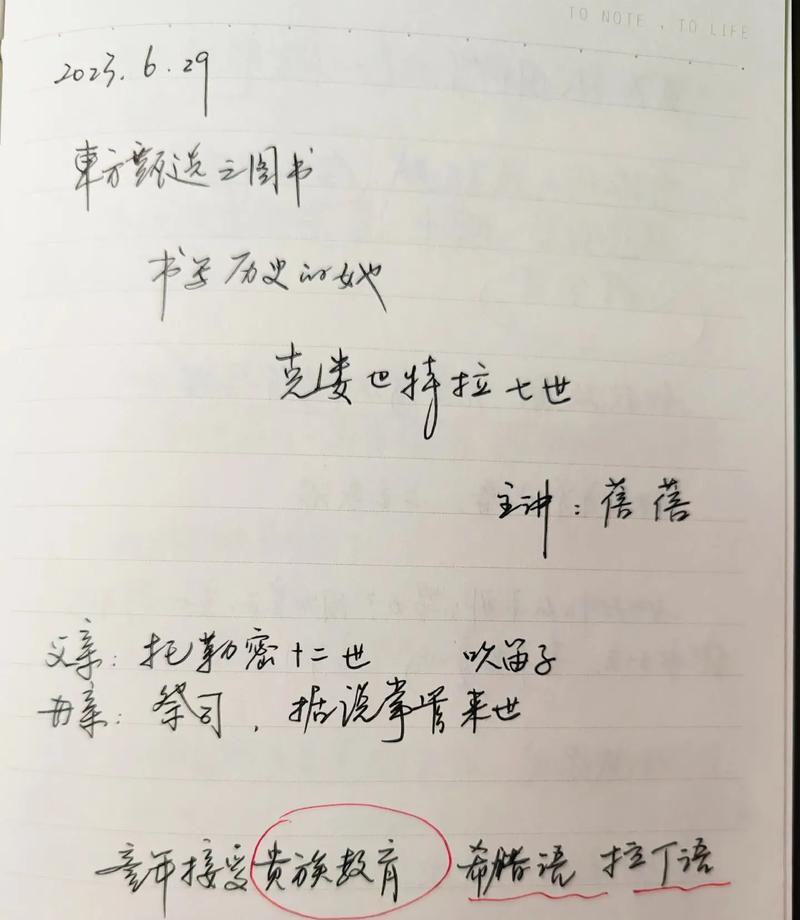 TO NOTE , TO LIFE
2023.6.29
東方甄选之图书
书写历史的她
克娄巴特拉七世
主讲：蓓蓓
父亲：托勒密十二世 吹笛子
母亲：祭司，据说掌管来世
童年接受贵族教育 希腊语 拉丁语